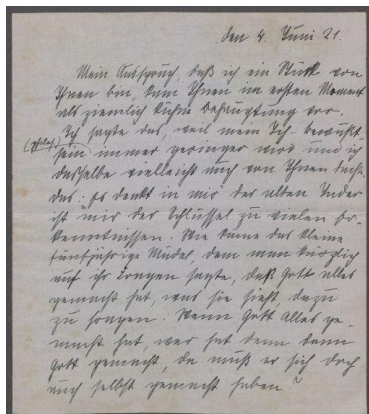 den 4. Juni 21.
Mein Ausspruch, daß ich ein Stück von
Ihnen bin, kam Ihnen im ersten Moment
als ziemlich kühne Behauptung vor.
Ich sagte das, weil mein Ich bewußt
sein immer geringer wird und ich
dasselbe vielleicht auch von Ihnen
das: Es denkt in mir der alten Inder
ist mir der Schlüssel zu vielen Er-
kenntnissen. Wie käme das kleine
fünfjährige Mädel, dem man kürzlich
auf ihr Fragen sagte, daß Gott alles
gemacht hat, was sie sieht, dazu
zu fragen: Wenn Gott Alles ge-
macht hat, wer hat denn dann
Gott gemacht, da muß er sich doch
auch selbst gemacht haben?